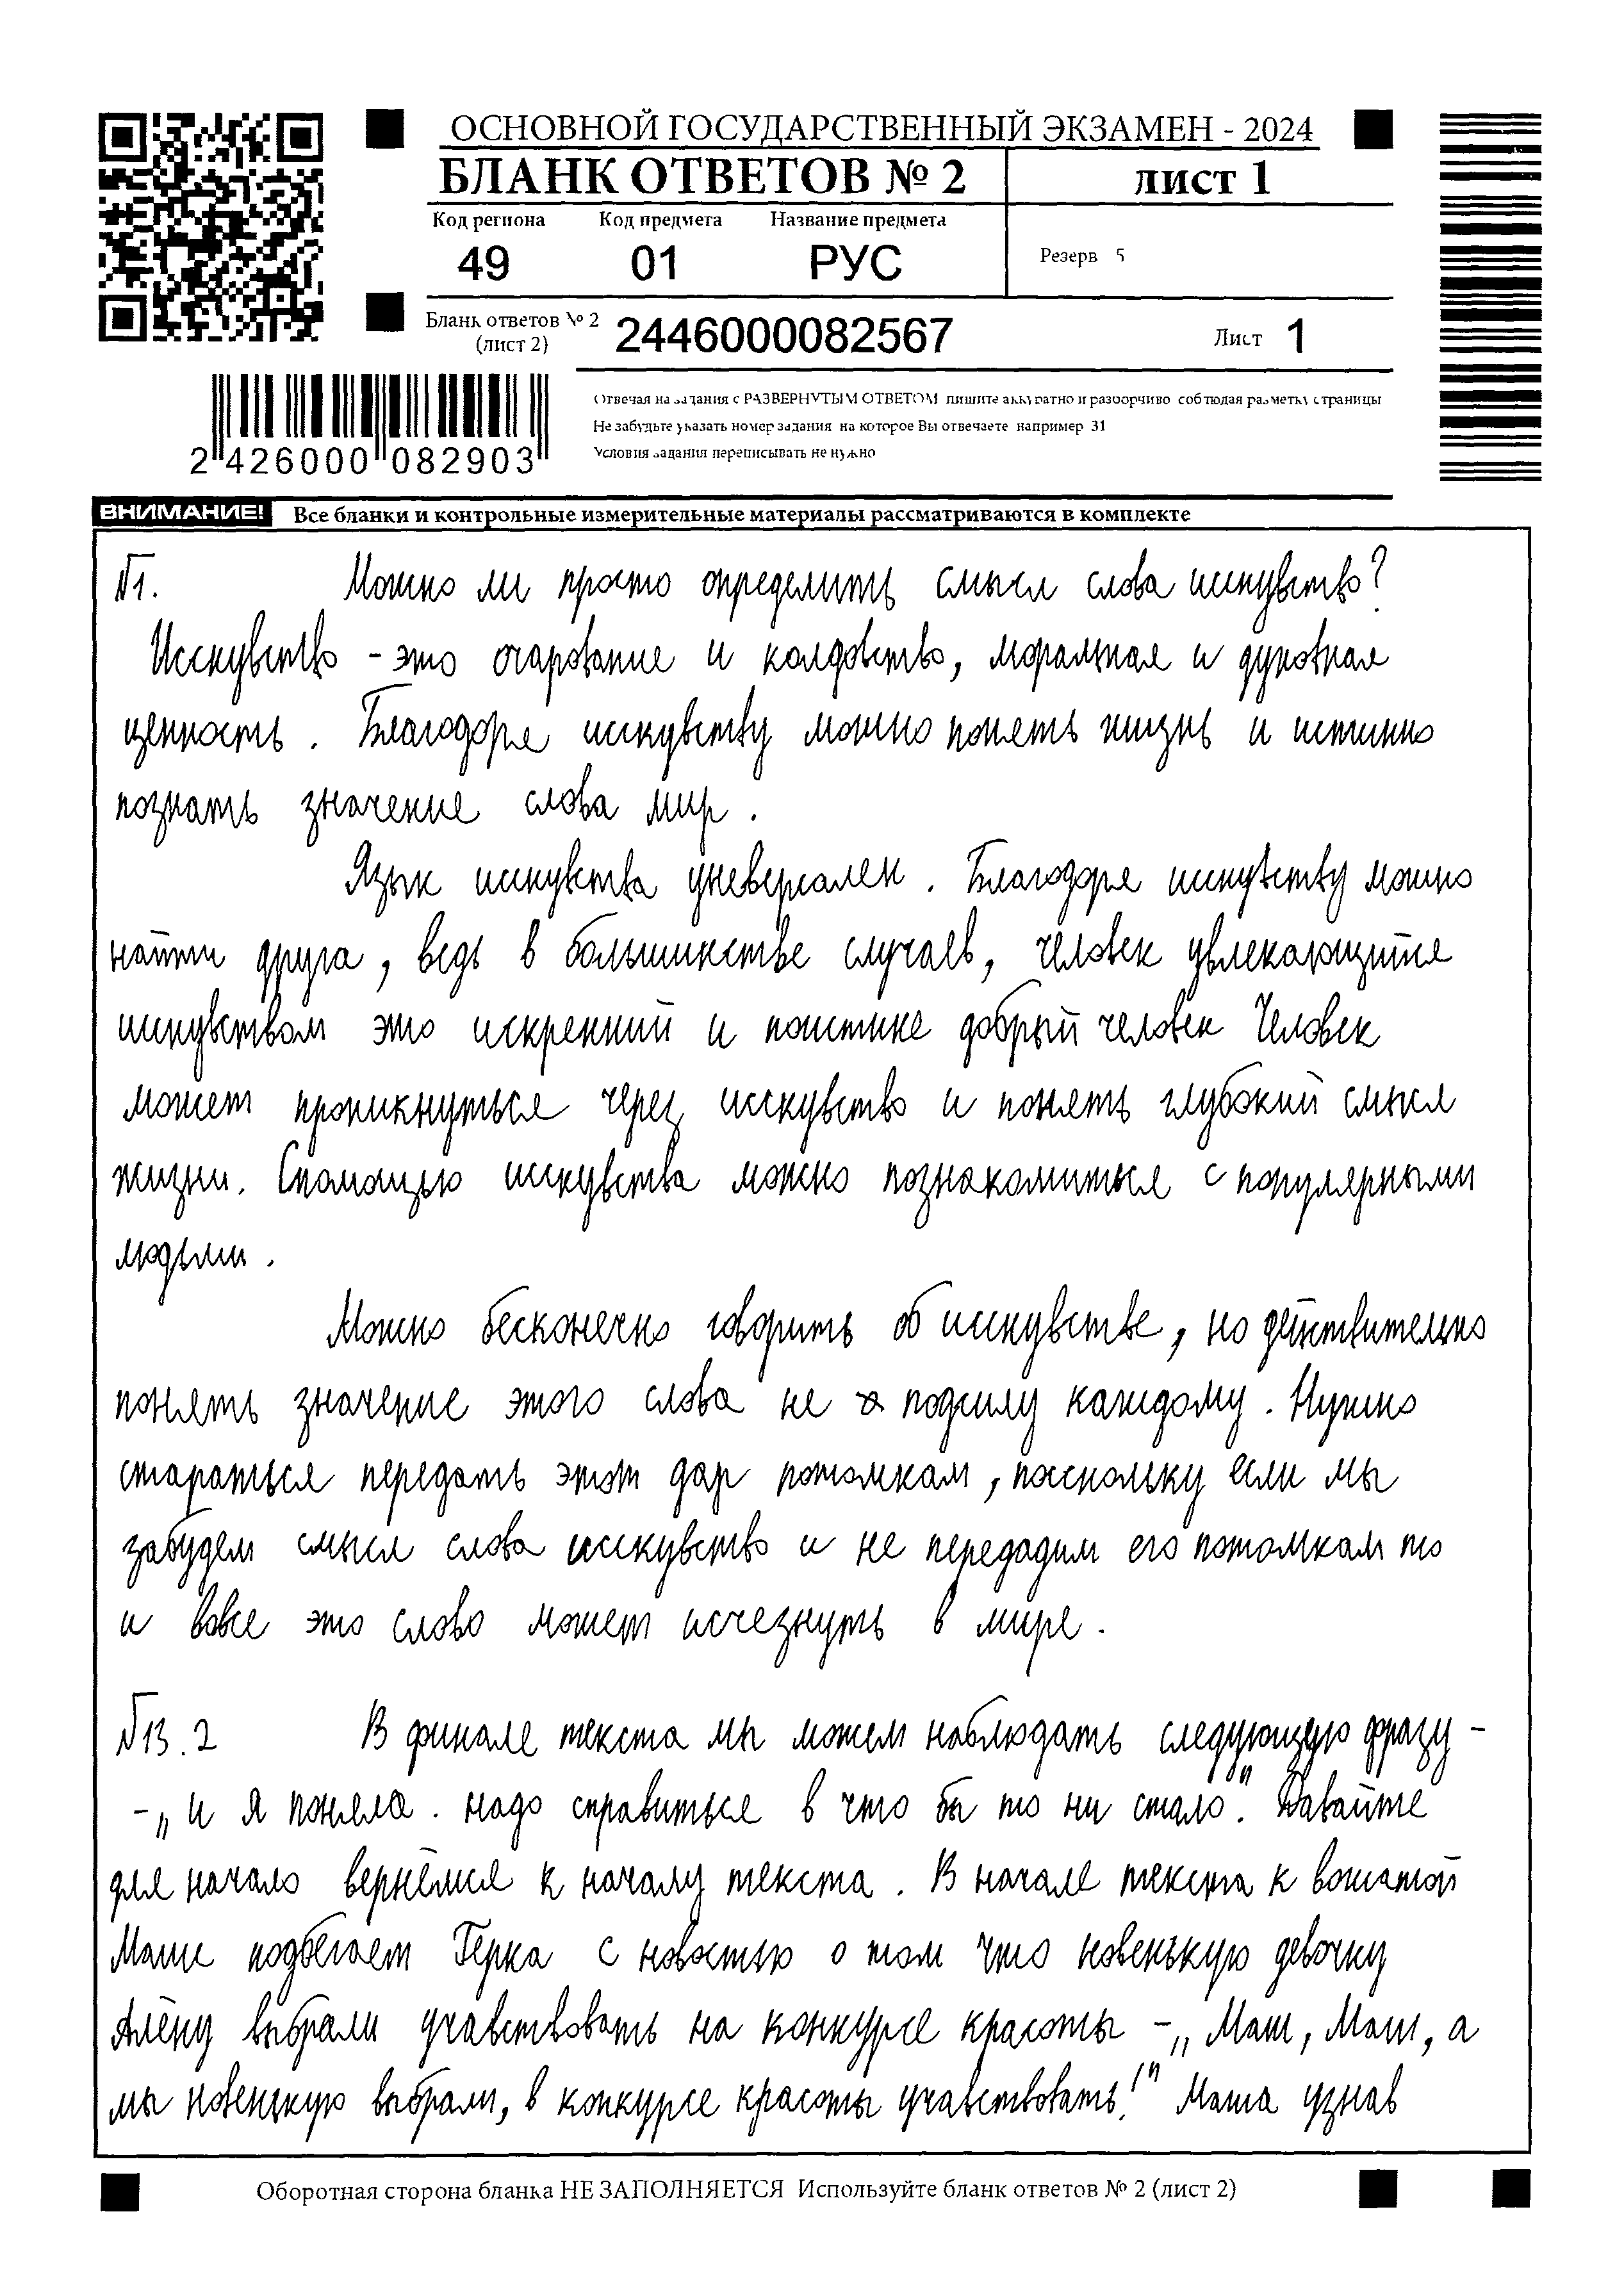 ОСНОВНОЙ ГОСУДАРСТВЕННЫЙ ЭКЗАМЕН - 2024
БЛАНК ОТВЕТОВ № 2
ЛИСТ 1
Код региона Код предмета Название предмета
49 01 РУС
Резерв 5
Бланк ответов № 2 (лист 2) 2446000082567
Лист 1
2 426000 082903
Отвечая на задания с РАЗВЕРНУТЫМ ОТВЕТОМ пишите аккуратно и разборчиво соблюдая разметку страницы
Не забудьте указать номер задания на которое Вы отвечаете например 31
Условия задания переписывать не нужно
ВНИМАНИЕ! Все бланки и контрольные измерительные материалы рассматриваются в комплекте
№1. Можно ли просто определить смысл слова исскувство?
Исскувство - это очарование и колдовство, моральная и духовная
ценность. Благодоря исскувству можно понять жизнь и истинно
познать значение слова мир.
Язык исскувства уневерсален. Благодоря исскувству можно
найти друга, ведь в большинстве случаев, человек увлекающийся
исскувством это искренний и поистине добрый человек Человек
может проникнуться через исскувство и понять глубокий смысл
жизни. Спомощью исскувства можно познакомиться с популярными
людьми.
Можно бесконечно говорить об исскувстве, но действительно
понять значение этого слова не подсилу каждому. Нужно
стараться передать этот дар потомкам, поскольку если мы
забудем смысл слова исскувство и не передадим его потомкам то
и вовсе это слово может исчезнуть в мире.
№13.2 В финале текста мы можем наблюдать следующую фразу -
- „И я поняла. надо справиться в что бы то ни стало". Давайте
для начало вернёмся к началу текста. В начале текста к вожатой
Маше подбегает Герка с новостью о том что новенькую девочку
Алёну выбрали учавствовать на конкурсе красоты - „Маш, Маш, а
мы новенькую выбрали, в конкурсе красоты учавствовать!" Маша узнав
Оборотная сторона бланка НЕ ЗАПОЛНЯЕТСЯ Используйте бланк ответов № 2 (лист 2)